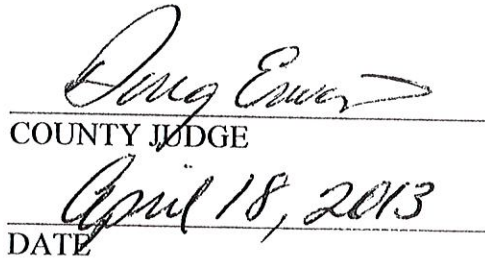 Doug Erwin
COUNTY JUDGE
April 18, 2013
DATE